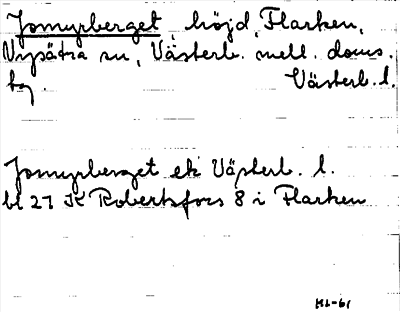 Jomyrberget, höjd, Flarken,
Nysätra sn, Västerb. mell. doms.
hg. Västerb. l.
Jomyrberget ek Västerb. l.
bl 21 K Robertsfors 8 i Flarken
KL-61